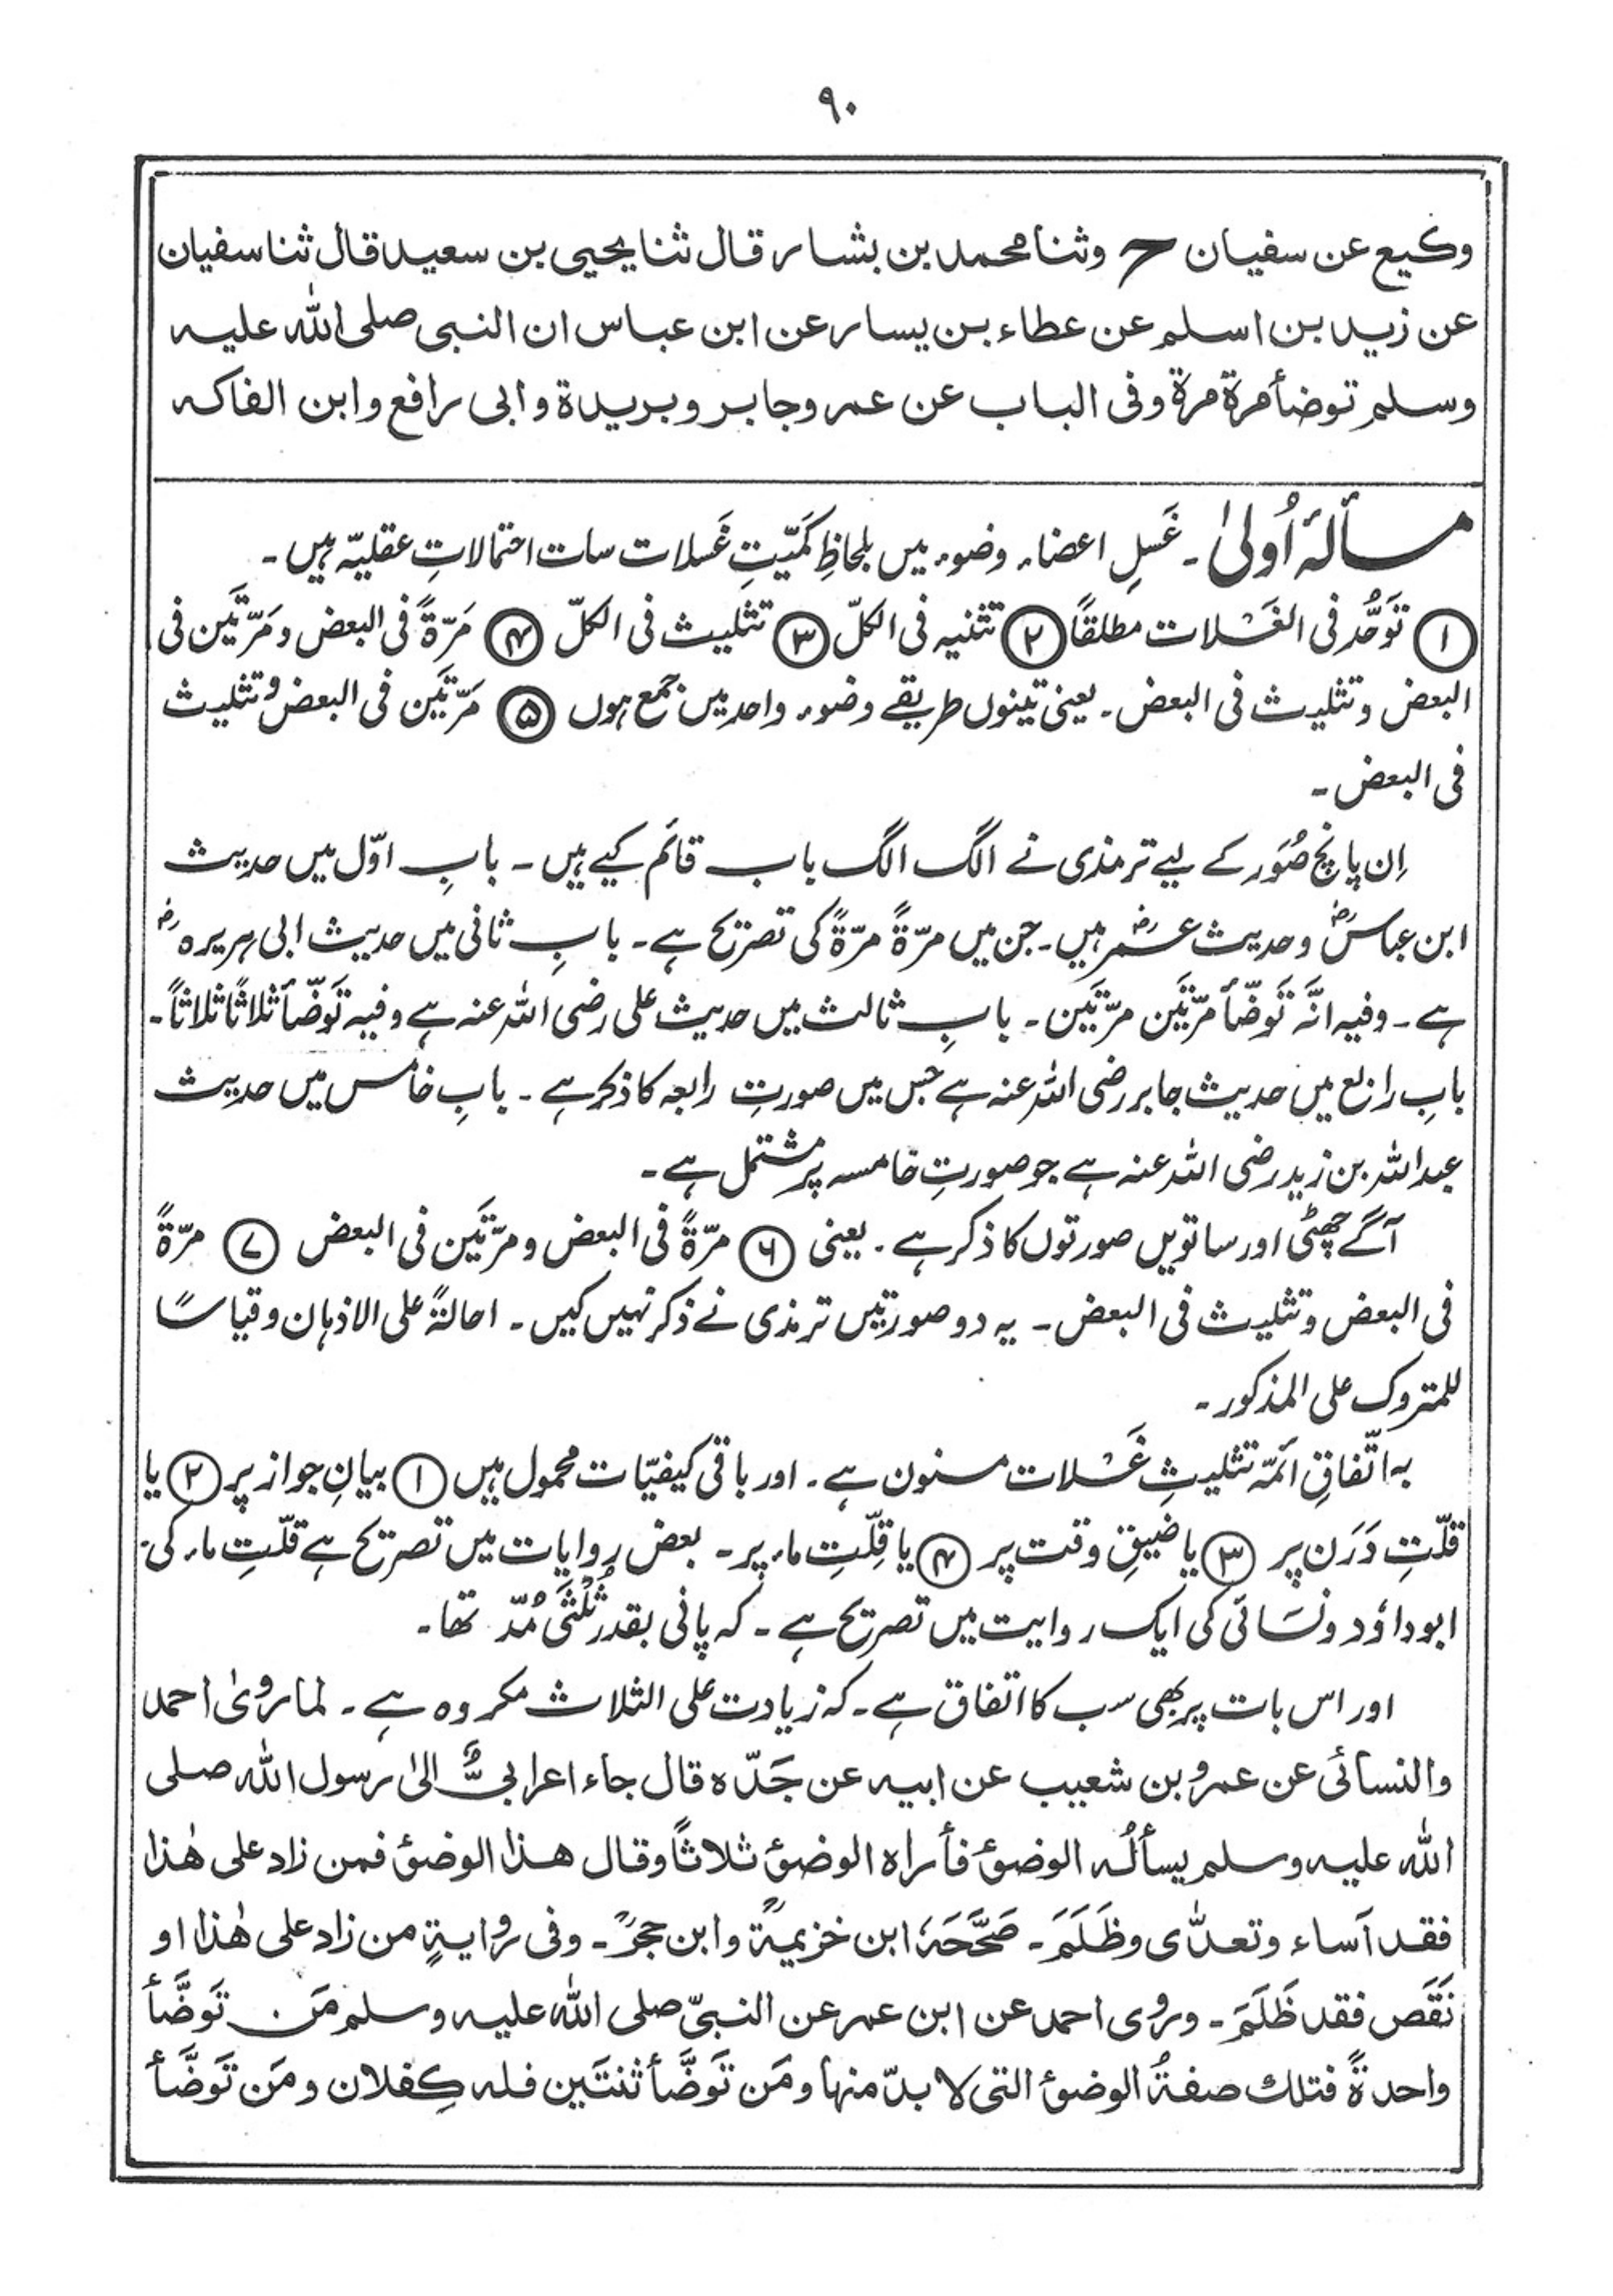 ۹۰
وکیع عن سفیان ح وثنا محمد بن بشار قال ثنا یحیی بن سعید قال ثنا سفیان
عن زید بن اسلم عن عطاء بن یسار عن ابن عباس ان النبی صلی الله علیه
وسلم توضأ مرة مرة وفی الباب عن عمر وجابر وبریدة وابی رافع وابن الفاکه
مسألۂ اُولیٰ ۔ غَسلِ اعضاء وضوء میں بلحاظِ کَمّیّتِ غَسلات سات احتمالاتِ عقلیّہ ہیں ۔
① تَوَحُّد فی الغَسْلات مطلقاً ② تثنیہ فی الکلّ ③ تثلیث فی الکلّ ④ مَرّۃً فی البعض و مَرّتَین فی
البعض و تثلیث فی البعض ۔ یعنی تینوں طریقے وضوء واحد میں جمع ہوں ⑤ مَرّتَین فی البعض و تثلیث
فی البعض ۔
اِن پانچ صُوَر کے لیے ترمذی نے الگ الگ باب قائم کیے ہیں ۔ بابِ اوّل میں حدیث
ابن عباسؓ و حدیث عمرؓ ہیں ۔ جن میں مرّۃً مرّۃً کی تصریح ہے ۔ بابِ ثانی میں حدیث ابی ہریرہؓ
ہے ۔ وفیہ انَّہ تَوضّأ مرّتَین مرّتَین ۔ بابِ ثالث میں حدیث علی رضی اللہ عنہ ہے وفیہ تَوضّأ ثلاثاً ثلاثاً ۔
بابِ رابع میں حدیث جابر رضی اللہ عنہ ہے جس میں صورتِ رابعہ کا ذکر ہے ۔ بابِ خامس میں حدیث
عبداللہ بن زید رضی اللہ عنہ ہے جو صورتِ خامسہ پر مشتمل ہے ۔
آگے چھٹی اور ساتویں صورتوں کا ذکر ہے ۔ یعنی ⑥ مرّۃً فی البعض و مرّتَین فی البعض ⑦ مرّۃً
فی البعض و تثلیث فی البعض ۔ یہ دو صورتیں ترمذی نے ذکر نہیں کیں ۔ احالۃً علی الاذہان و قیاسًا
للمتروک علی المذکور ۔
بہ اتّفاقِ ائمّہ تثلیثِ غَسْلات مسنون ہے ۔ اور باقی کیفیّات محمول ہیں ① بیانِ جواز پر ② یا
قلّتِ دَرَن پر ③ یا ضیقِ وقت پر ④ یا قِلّتِ ماء پر ۔ بعض روایات میں تصریح ہے قلّتِ ماء کی ۔
ابوداؤد و نسَائی کی ایک روایت میں تصریح ہے ۔ کہ پانی بقدر ثُلُثَی مُدّ تھا ۔
اور اس بات پر بھی سب کا اتفاق ہے ۔ کہ زیادت علی الثلاث مکروہ ہے ۔ لما رویٰ احمد
والنسائی عن عمرو بن شعیب عن ابیه عن جَدّه قال جاء اعرابیٌّ الیٰ رسول الله صلی
الله علیه وسلم یسألُه الوضوٗ فأراه الوضوٗ ثلاثاً وقال هذا الوضوٗ فمن زاد علی هٰذا
فقد اَساء وتعدّٰی وظَلَمَ ۔ صَحَّحَهٗ ابن خزیمةؒ وابن حجرؒ ۔ وفی روایةٍ من زاد علی هٰذا او
نَقَص فقد ظَلَمَ ۔ وروی احمد عن ابن عمر عن النبیّ صلی الله علیه وسلم مَن تَوَضَّأ
واحدةً فتلك صفةُ الوضوٗ التی لا بدّ منها ومَن تَوَضَّأ ثنتَین فله کِفلان ومَن تَوَضَّأ